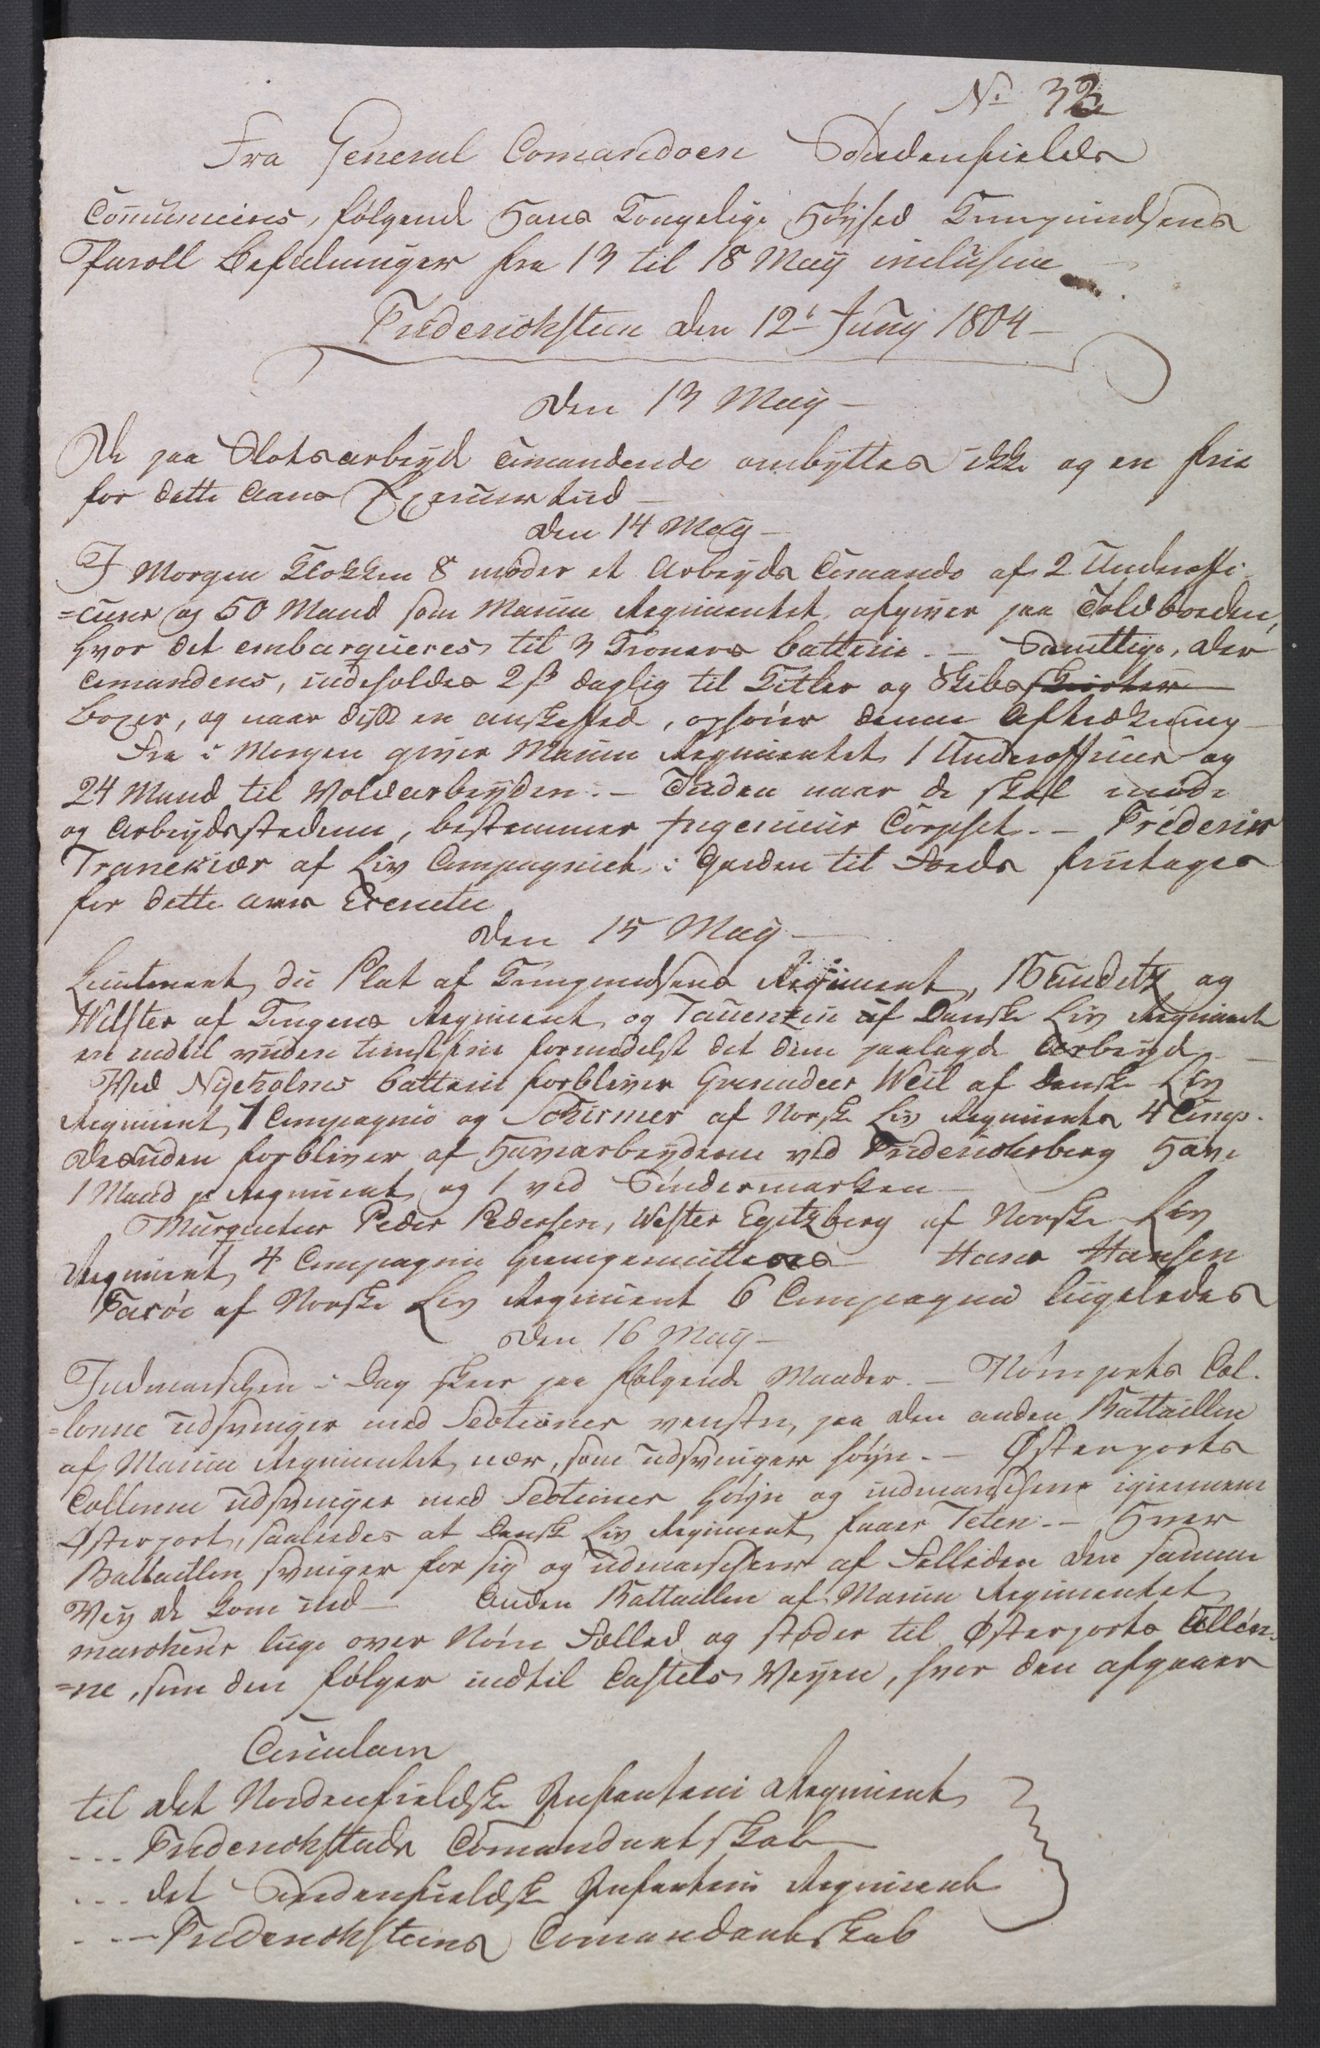 No 32
Fra General Comandoen Søndenfields
Comuniceres, følgende Hans Kongelige Høyhed Kronprindsens
Paroll Befalninger fra 13 til 18 May inclusive
Friderichsteen den 12t Juny 1804
den 13 May
De paa Slotsarbeyd Comanderede ombyttes ikke og er frie
for dette Aars Exerceer tiid
den 14 May
I Morgen Klokken 8 møder et Arbeyds Comando af 2 Underoffi-
=cierer og 50 Mand som Marine Regimentet afgiver paa Toldboeden,
hvor det embarqueres til 3 Kroners Batterie. - Samtlige der
Comanderes, indeholdes 2 ß daglig til Kitler og Skibs
Boxer, og naar disse er anskaffed, ophører denne Aftrækning
Fra i Morgen giver Marine Regimentet 1 Underofficier og
24 Mand til Voldarbeyden. - Tiden naar de skal møde
og Arbeydsstederne, bestemmer Ingenieur Corpset. - Friderich
Tranekiær af Liv Compagniet i Garden til Foeds fritages
for dette aars Exercitie
den 15 May
Lieutenant du Plat af Kronprindsens Regiment, Bauditz og
Wilster af Kongens Regiment og Tauenzin af Danske Liv Regiment
ere indtil viidere tieneste frie formedelst det dem paalagde Arbeyd
Ved Nyeholms Batterie forbliver Grenadeer Weil af danske Liv
Regiment 1 Compagnie og Schirmer af Norske Liv Regiments 4 Comp.
Desuden forbliver af Havearbeyderne ved Friderichsberg Have
1 Mand pr Regiment og 1 ved Søndermarken
Murqueteur Peder Pedersen, Wester Egitzberg af Norske Liv
Regiment 4 Compagnie Hans Hansen
Farøe af Norske Liv Regiment 6 Compagnie liigeledes
den 16 May
Indmarschen i Dag skeer paa følgende Maader. - Nørreports Col-
=lonne udsvinger med Sectioner venstre, paa den anden Battaillon
af Marine Regimentet nær, som udsvinger høyre. - Østerports
Collonne udsvinger med Sectioner høyre og indmarscherer igiennem
Østerport, saaledes at Danske Liv Regiment faaer Teten. - Hver
Battaillon svinger for sig og udmarscherer af Felleden den samme
Vey de kom ind Anden Battaillon af Marine Regimentet
marcherer liige over Nørre Fælled og støder til Østerports Collon-
=ne, som den følger indtil Castels Veyen, hvor den afgaaer
Circulaire
til det Nordenfieldske Infanterie Regiment
... Friderichstads Comandantskab
... det Søndenfieldske Infanterie Regiment
... Friderichsteens Comandantskab